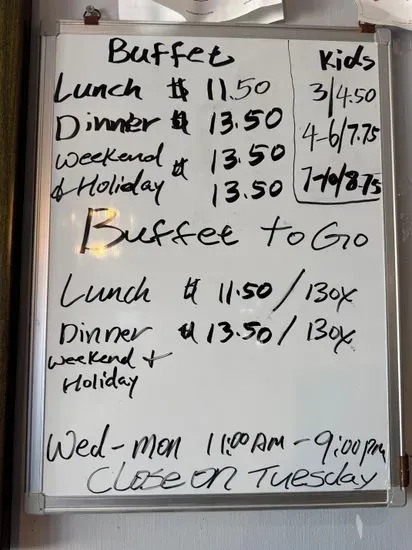 Buffet
Lunch $ 11.50
Dinner $ 13.50
Weekend $ 13.50
& Holiday 13.50
Kids
3/4.50
4-6/7.75
7-10/8.75
Buffet To Go
Lunch $ 11.50 / 1 Box
Dinner $ 13.50 / 1 Box
Weekend +
Holiday
Wed - Mon 11:00 AM - 9:00 pm
Close on Tuesday